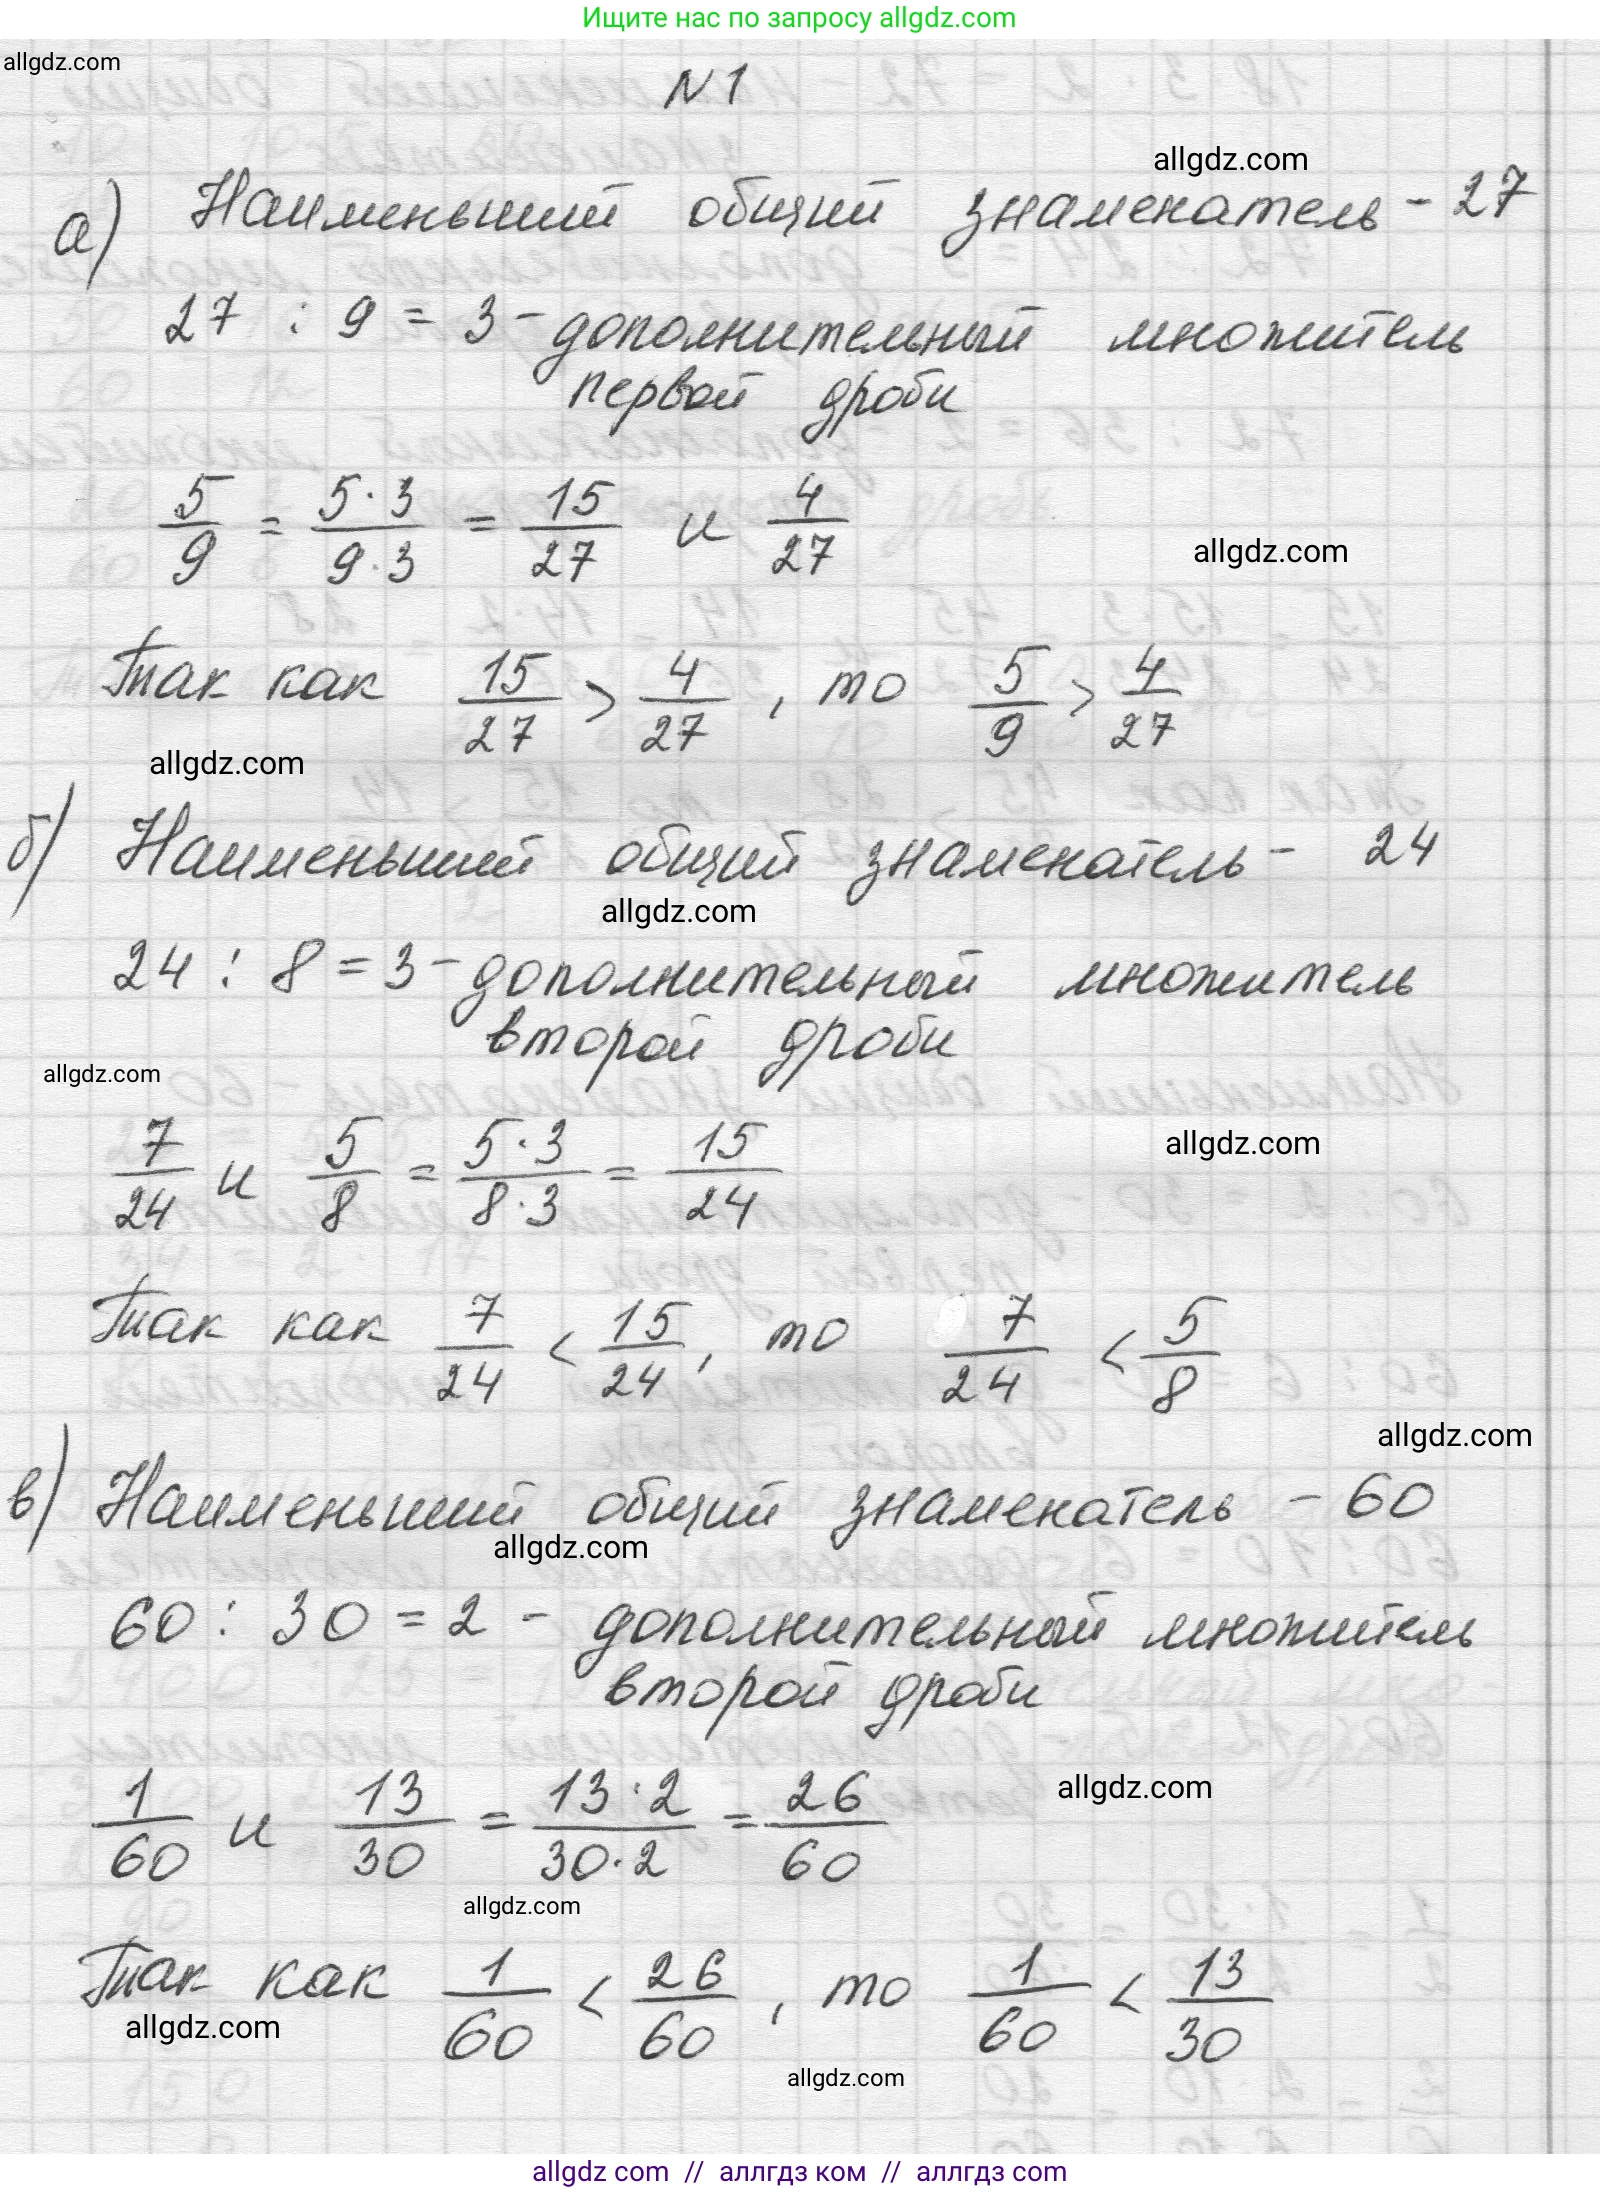 Ищите нас по запросу allgdz.com
allgdz.com
N1
allgdz.com
а) Наименьший общий знаменатель - 27
27 : 9 = 3 - дополнительный множитель
первой дроби
5/9 = 5·3/9·3 = 15/27 и 4/27
allgdz.com
Так как 15/27 > 4/27, то 5/9 > 4/27
allgdz.com
б) Наименьший общий знаменатель - 24
allgdz.com
24 : 8 = 3 - дополнительный множитель
второй дроби
allgdz.com
7/24 и 5/8 = 5·3/8·3 = 15/24
allgdz.com
Так как 7/24 < 15/24, то 7/24 < 5/8
allgdz.com
в) Наименьший общий знаменатель - 60
allgdz.com
60 : 30 = 2 - дополнительный множитель
второй дроби
1/60 и 13/30 = 13·2/30·2 = 26/60
allgdz.com
allgdz.com
Так как 1/60 < 26/60, то 1/60 < 13/30
allgdz.com
allgdz.com
allgdz com // аллгдз ком // аллгдз com